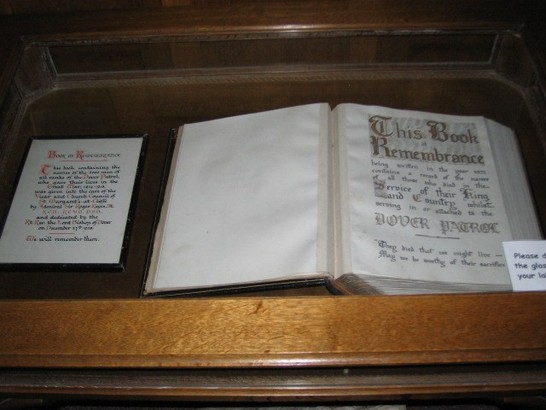 Book of Remembrance
This book containing the
names of the men of
all ranks of the Dover Patrol
who gave their lives in the
Great War 1914-1918
was given into the care of the
Vicar and Church Council of
St. Margaret's at Cliffe
by Admiral Sir Roger Keyes Bt.
and dedicated by the
the Lord Bishop of Dover
on December
We will remember them.
This Book
of Remembrance
being written in the year
contains a record of the names
of all those who died in the
Service of their King
and Country whilst
serving in or attached to the
DOVER PATROL
They died that we might live —
May we be worthy of their sacrifice
Please d
the glas
your